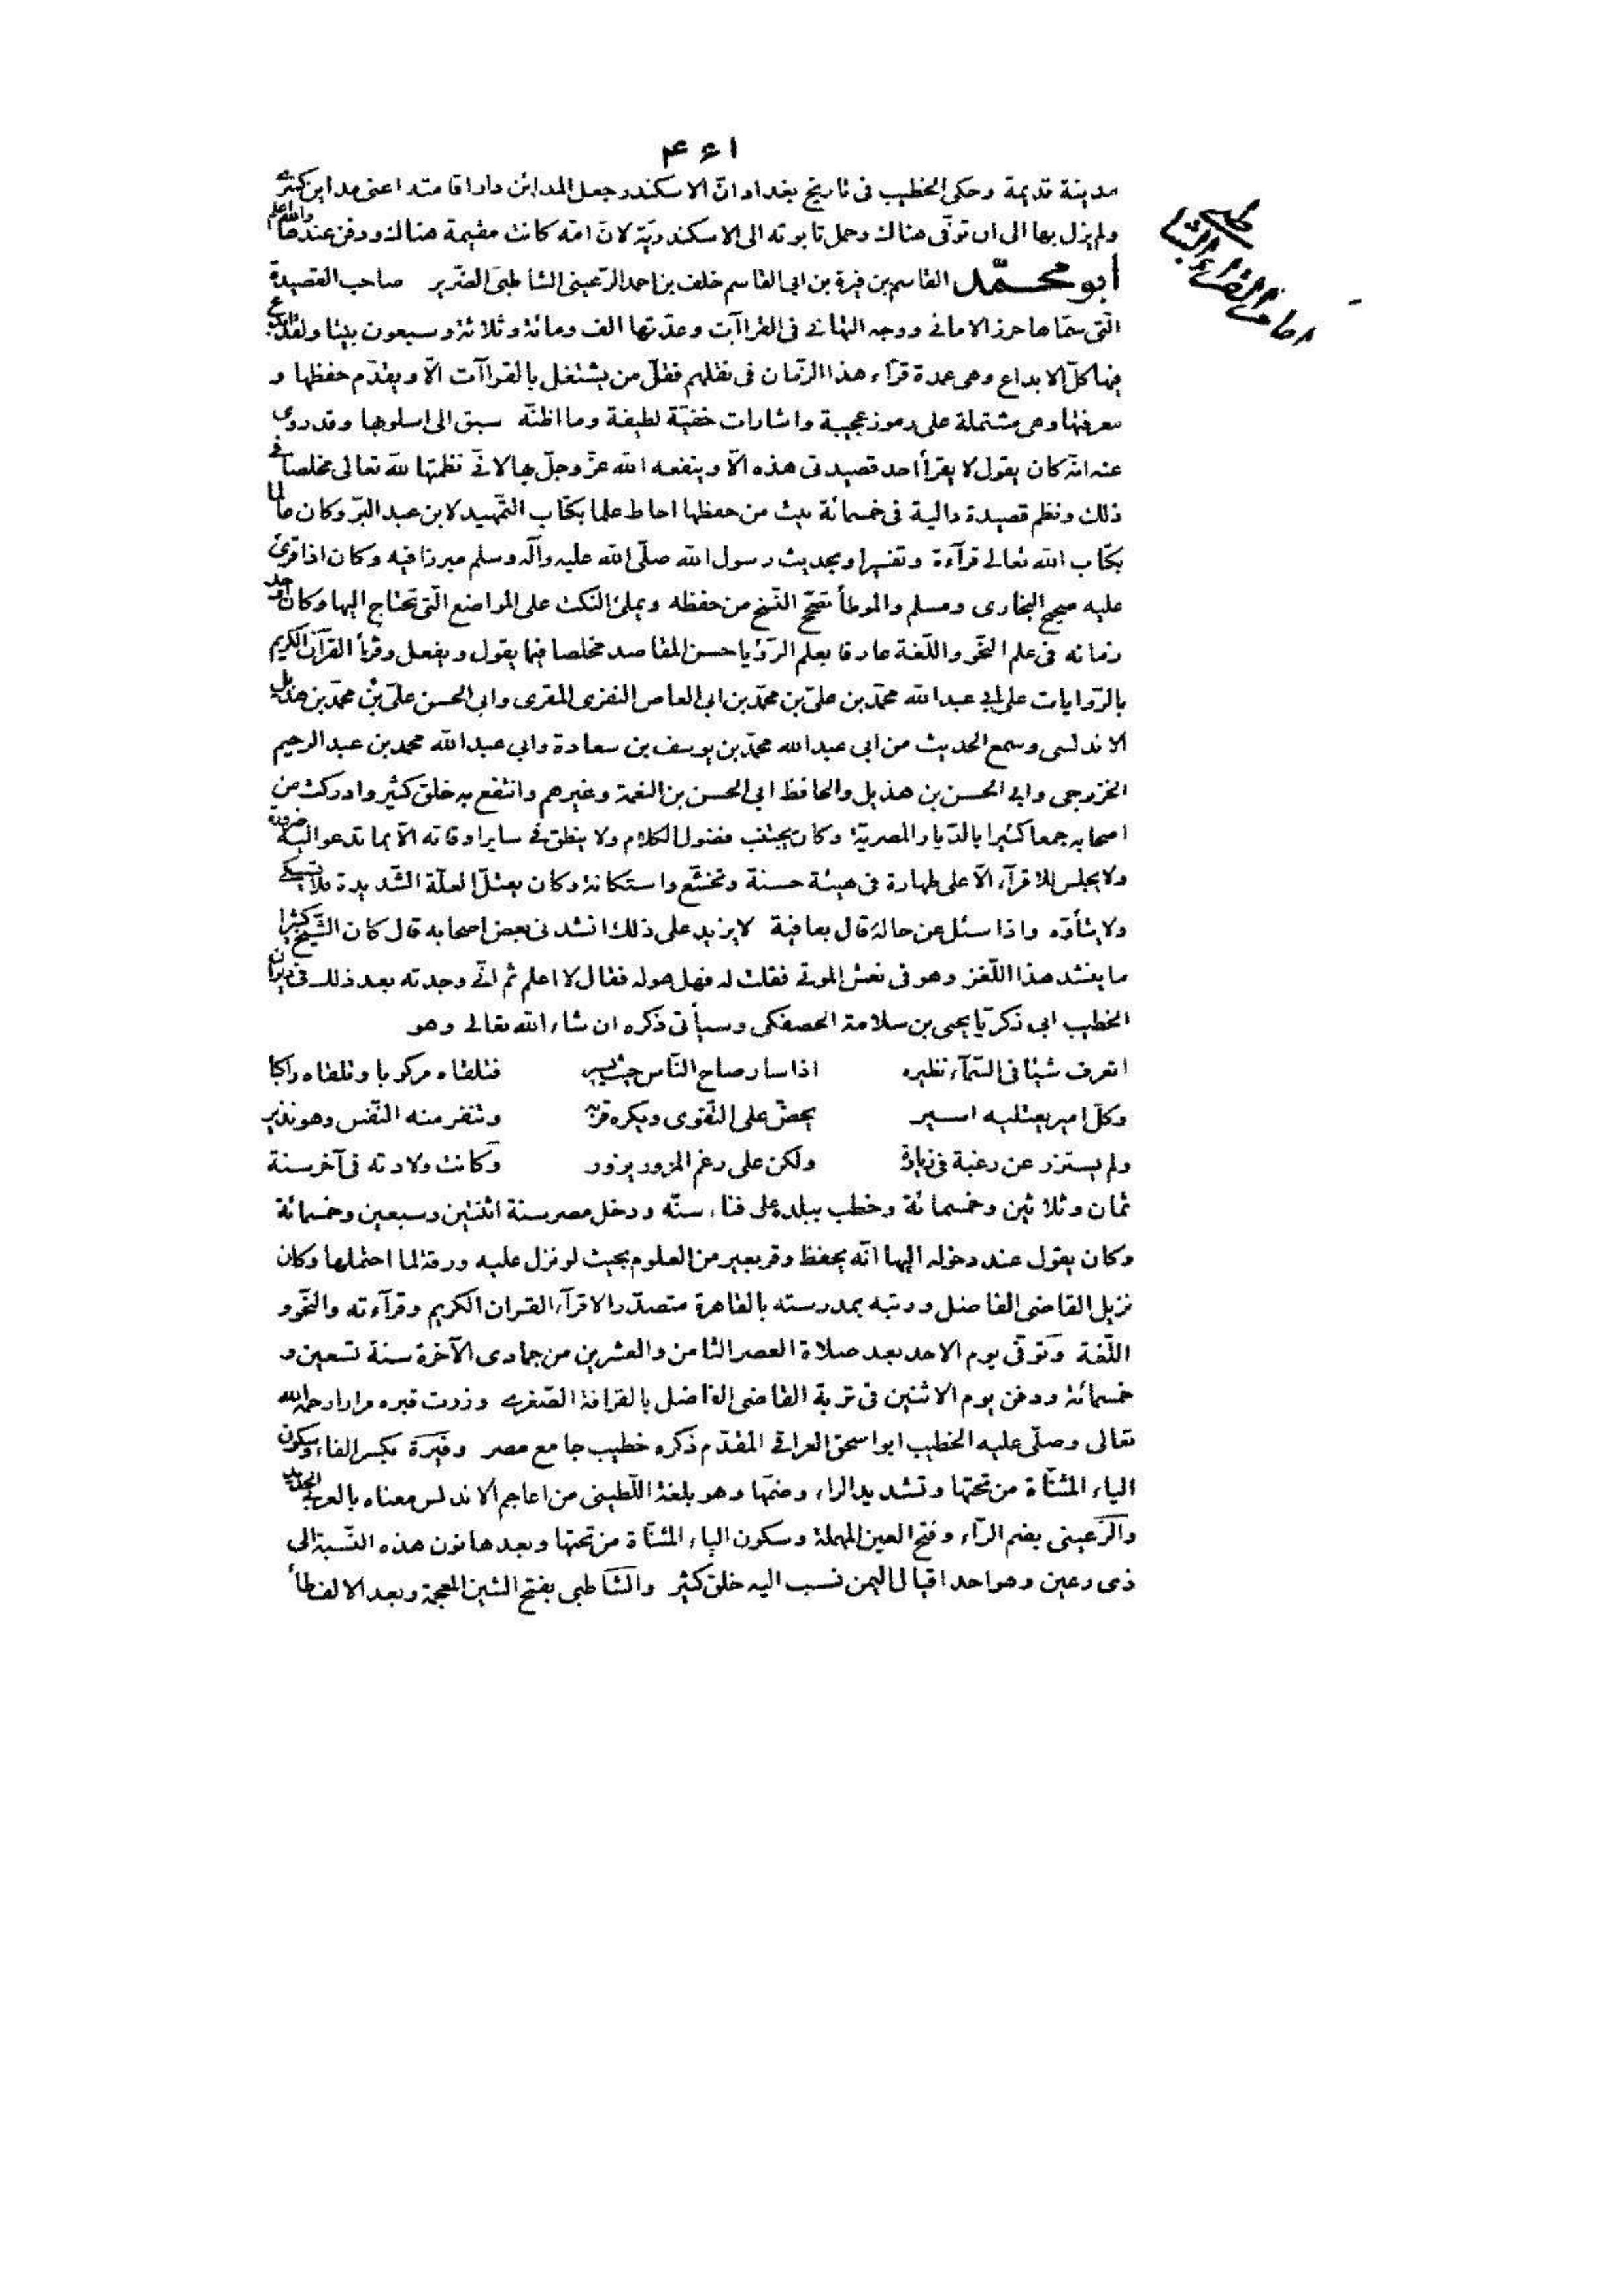 ۴۶۱
مدينة قديمة وحكى الخطيب فى تاريخ بغداد انّ الاسكندر جعل المدائن دار اقامته اعنى مداين كسرى
ولم يزل بها الى ان توفّى هناك وحمل تابوته الى الاسكندريّة لانّ امّه كانت مقيمة هناك ودفن عندها والله اعلم
أبو محمّد القاسم بن فيرة بن ابى القاسم خلف بن احمد الرّعينى الشاطبىّ الضّرير صاحب القصيدة
الّتى سمّاها حرز الامانى ووجه التهانى فى القراآت وعدّتها الف ومائة وثلاثة وسبعون بيتا ولقد ابدع
فيها كلّ الابداع وهى عمدة قرّآء هذا الزّمان فى نقلهم فقلّ من يشتغل بالقراآت الّا ويقدّم حفظها و
معرفتها وهى مشتملة على رموز عجيبة واشارات خفيّة لطيفة وما اظنّه سبق الى اسلوبها وقد روى
عنه انّه كان يقول لا يقرأ احد قصيدتى هذه الّا وينفعه الله عزّ وجلّ بها لانّى نظمتها لله تعالى مخلصا فى
ذلك ونظم قصيدة دالية فى خمسمائة بيت من حفظها احاط علما بكتاب التّمهيد لابن عبد البرّ وكان عالما
بكتاب الله تعالى قرآءة وتفسيرا وبحديث رسول الله صلّى الله عليه وآله وسلم مبرزا فيه وكان اذا قرئ
عليه صحيح البخارى ومسلم والموطأ تصحّح النّسخ من حفظه ويملئ النكت على المواضع الّتى تحتاج اليها وكان اوحد
زمانه فى علم النّحو واللّغة عارفا بعلم الرّؤيا حسن المقاصد مخلصا فيما يقول ويفعل وقرأ القرآن الكريم
بالرّوايات على ابى عبد الله محمّد بن علىّ بن محمّد بن ابى العاص النفزى المقرى وابى الحسن علىّ بن محمّد بن هذيل
الاندلسى وسمع الحديث من ابى عبد الله محمّد بن يوسف بن سعادة وابى عبد الله محمد بن عبد الرحيم
الخزرجى وابى الحسن بن هذيل والحافظ ابى الحسن بن النعمة وغيرهم وانتفع به خلق كثير وادركت من
اصحابه جمعا كثيرا بالدّيار المصريّة وكان يجتنب فضول الكلام ولا ينطق فى ساير اوقاته الّا بما تدعو اليه ضرورة
ولا يجلس للاقرآء الّا على طهارة فى هيئة حسنة وتخشّع واستكانة وكان يعتلّ العلّة الشّديدة فلا يشتكى
ولا يتأوّه واذا سئل عن حاله قال بعافية لا يزيد على ذلك انشدنى بعض اصحابه قال كان الشّيخ كثيرا
ما ينشد هذا اللّغز وهو فى نعش الموتى فقلت له فهل هو له فقال لا اعلم ثم انّى وجدته بعد ذلك فى ديوان
الخطيب ابى زكريّا يحيى بن سلامة الحصفكى وسيأتى ذكره ان شاء الله تعالى وهو
اتعرف شيئا فى السّمآء نظيره اذا سار صاح النّاس حيث يسير فتلقاه مركوبا وتلقاه راكبا
وكلّ امير يعتليه اسير يحضّ على التّقوى ويكره قربه وتنفر منه النّفس وهو نذير
ولم يستزر عن رغبة فى زيارة ولكن على رغم المزور يزور وكانت ولادته فى آخر سنة
ثمان وثلاثين وخمسمائة وخطب ببلده على فتاء سنّه ودخل مصر سنة اثنتين وسبعين وخمسمائة
وكان يقول عند دخوله اليها انّه يحفظ وقر بعير من العلوم بحيث لو نزل عليه ورقة لما احتملها وكان
نزيل القاضى الفاضل ورتبه بمدرسته بالقاهرة متصدّرا لاقرآء القران الكريم وقرآءته والنّحو و
اللّغة وتوفّى يوم الاحد بعد صلاة العصر الثامن والعشرين من جمادى الآخرة سنة تسعين و
خمسمائة ودفن يوم الاثنين فى تربة القاضى الفاضل بالقرافة الصّغرى وزرت قبره مرارا رحمه الله
تعالى وصلّى عليه الخطيب ابو اسحق العراقى المقدّم ذكره خطيب جامع مصر وفيرّة بكسر الفاء وسكون
الياء المثنّاة من تحتها وتشديد الراء وضمّها وهو بلغة اللّطينى من اعاجم الاندلس معناه بالعربى الحديد
والرّعينى بضم الرّاء وفتح العين المهملة وسكون الياء المثنّاة من تحتها وبعدها نون هذه النّسبة الى
ذى رعين وهو احد اقيال اليمن نسب اليه خلق كثير والشّاطبى بفتح الشين المعجمة وبعد الالف طأ